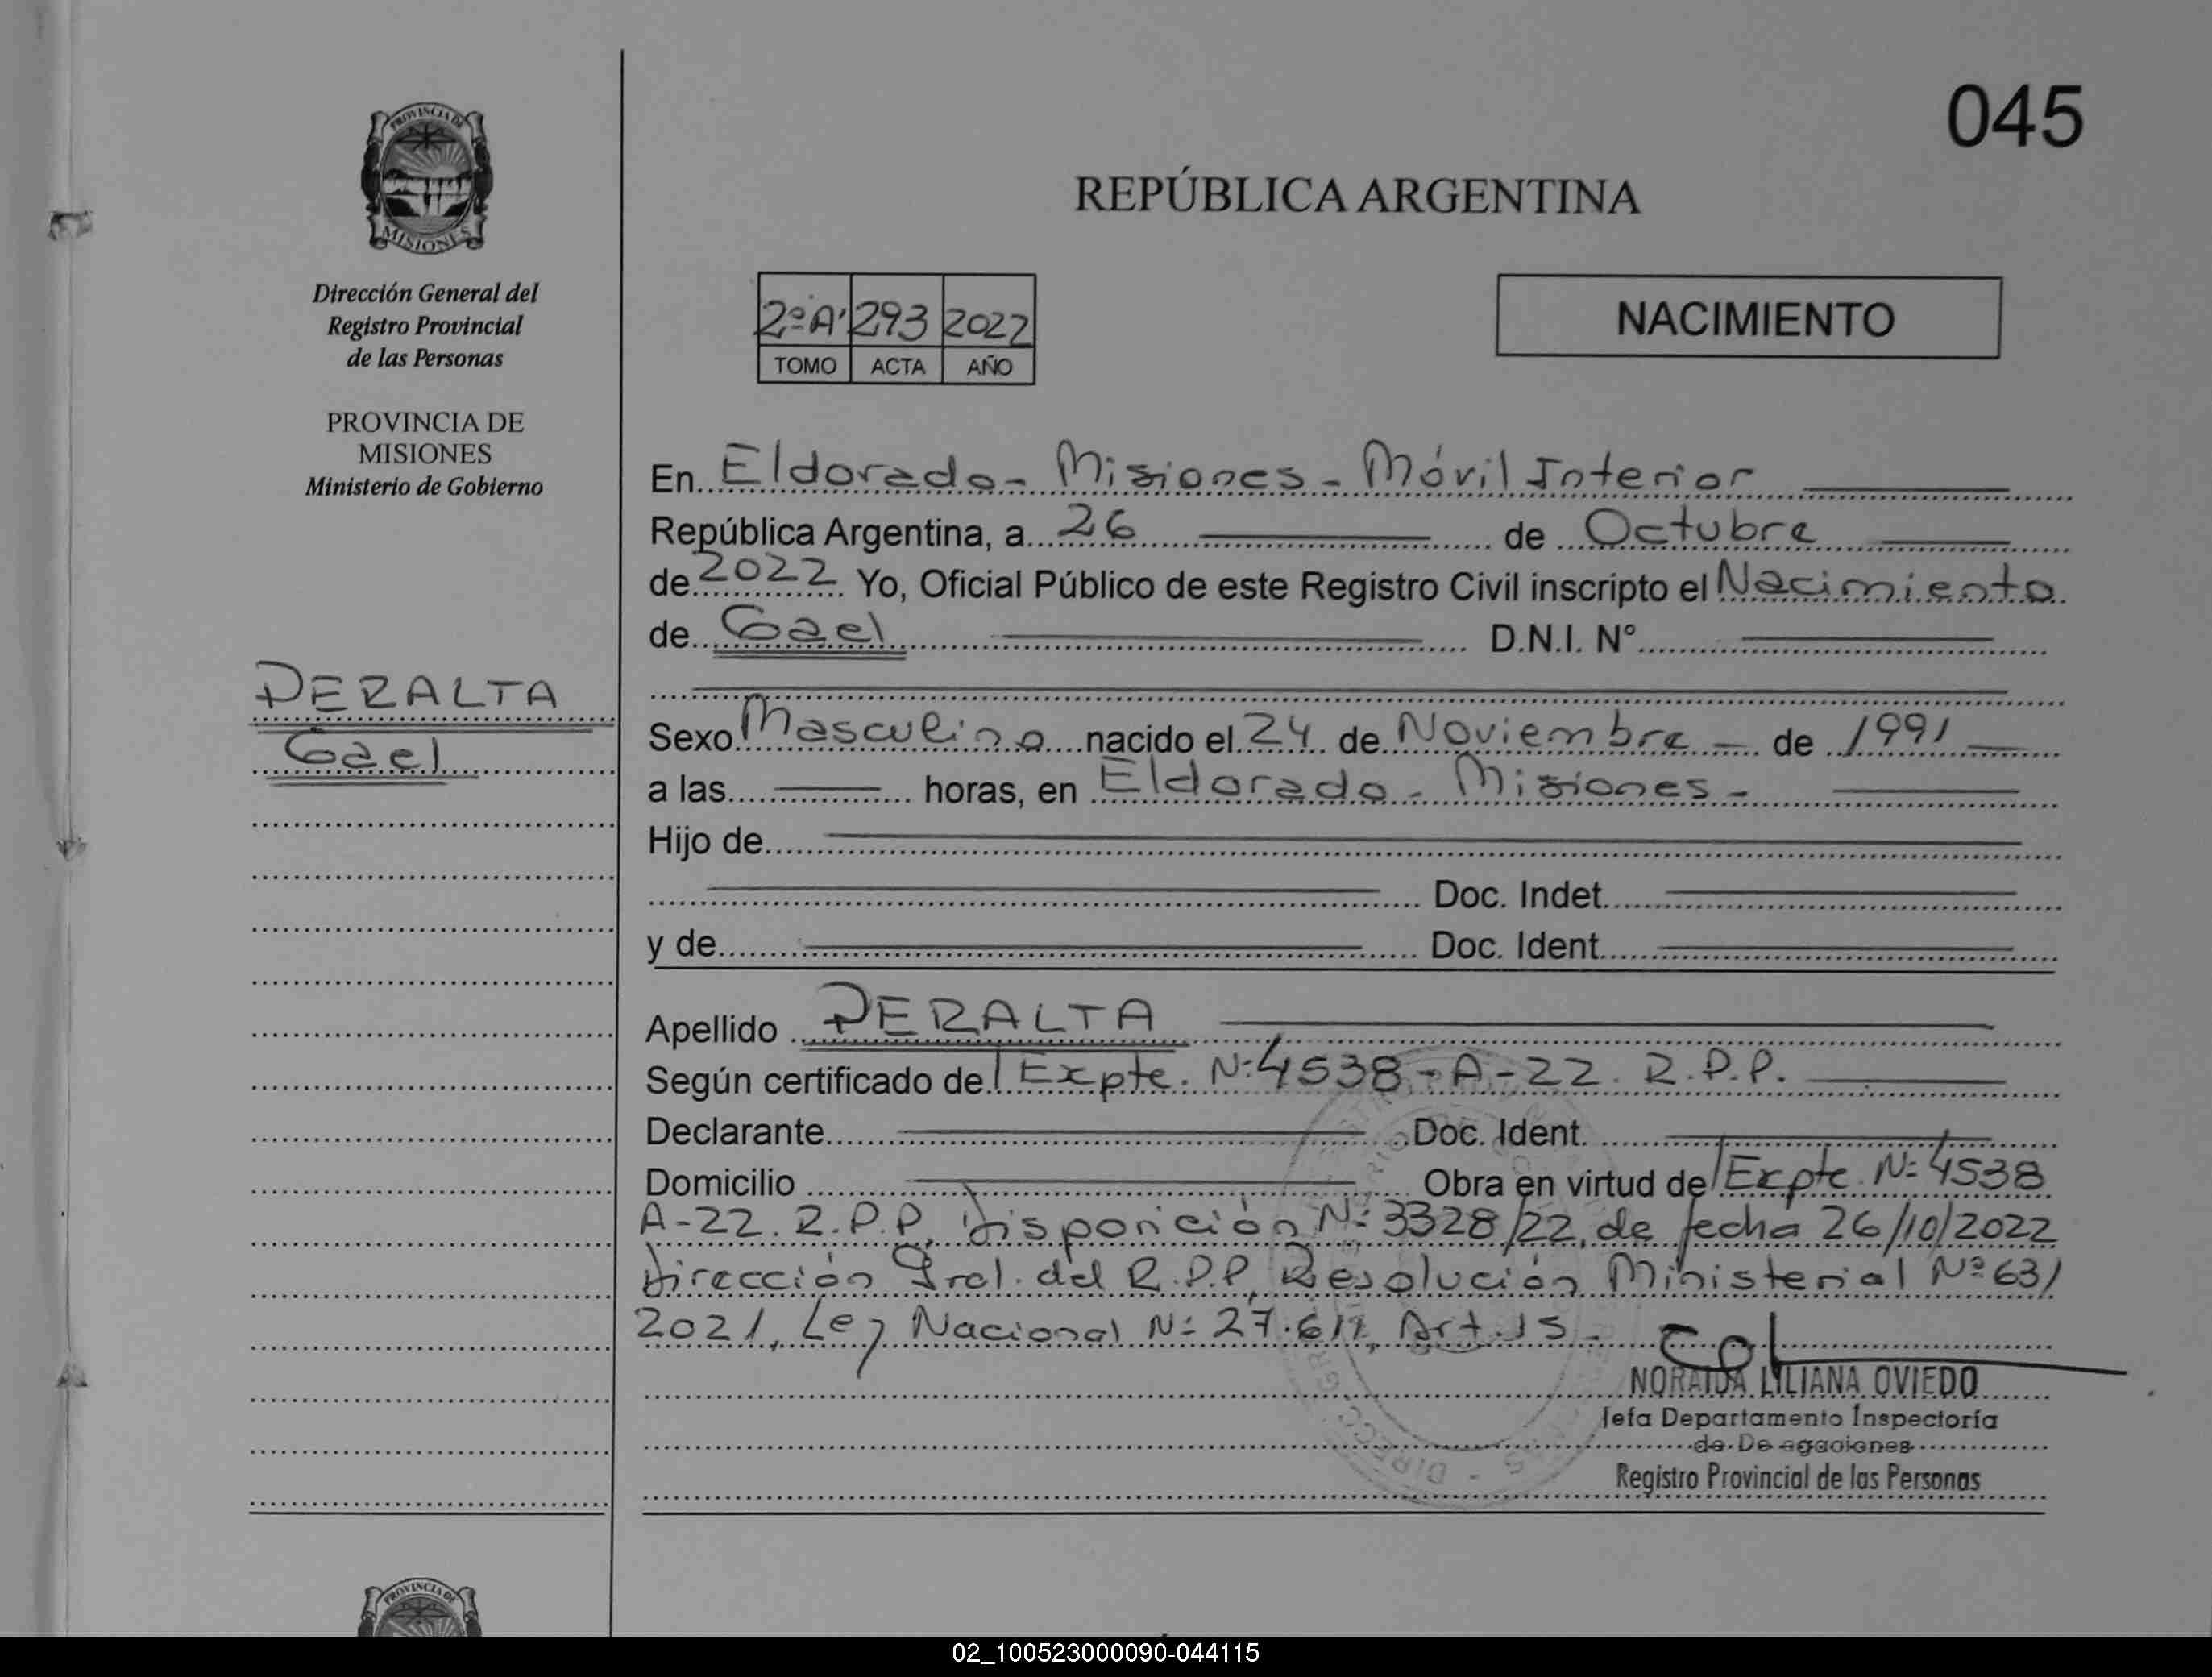 045
PROVINCIA DE
MISIONES
Dirección General del
Registro Provincial
de las Personas
PROVINCIA DE
MISIONES
Ministerio de Gobierno
PERALTA
Gael
REPÚBLICA ARGENTINA
2º"A" 293 2022
TOMO ACTA AÑO
NACIMIENTO
En Eldorado - Misiones - Móvil Interior
República Argentina, a 26 de Octubre
de 2022 Yo, Oficial Público de este Registro Civil inscripto el Nacimiento
de Gael D.N.I. N°
Sexo Masculino nacido el 24 de Noviembre de 1991
a las horas, en Eldorado - Misiones -
Hijo de
Doc. Indet.
y de Doc. Ident.
Apellido PERALTA
Según certificado de Expte. Nº 4538-A-22. R.P.P.
Declarante Doc. Ident.
Domicilio Obra en virtud de Expte. Nº 4538
A-22. R.P.P, Disposición Nº 3328/22, de fecha 26/10/2022
Dirección Gral. del R.P.P, Resolución Ministerial Nº 631
2021, Ley Nacional Nº Art. 15.
NORAIDA LILIANA OVIEDO
Jefa Departamento Inspectoría
de Delegaciones
Registro Provincial de las Personas
PROVINCIA DE
02_100523000090-044115